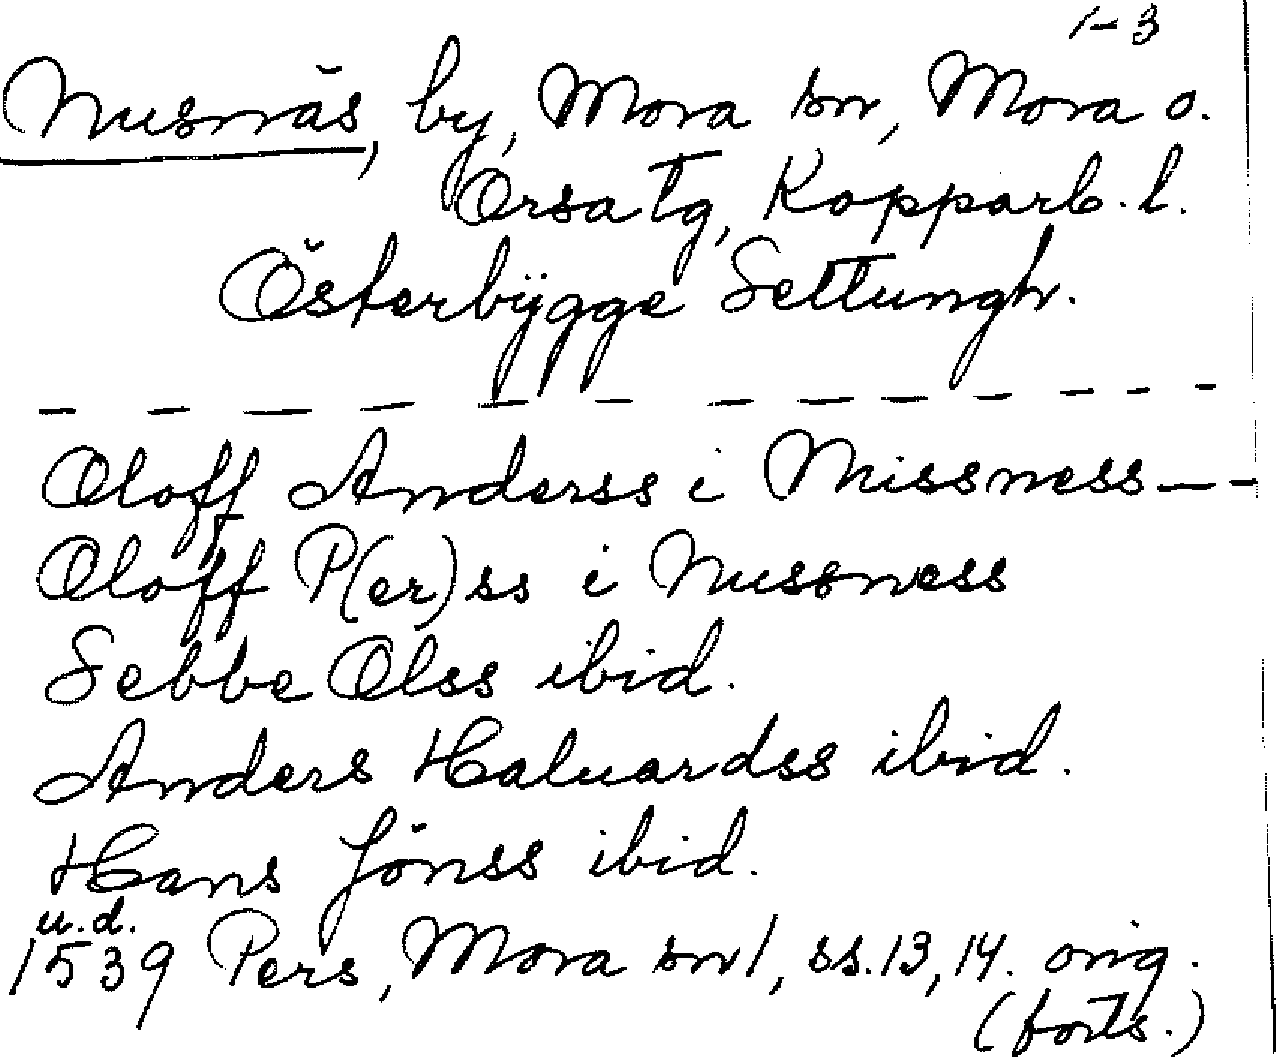 1-3
Nusnäs, by, Mora sn, Mora o.
Orsa tg, Kopparb. l.
Österbÿgge Settungh.
— — — — — — — — — — — — —
Oloff Anderss i Missness — -
Oloff P(er)ss i Nussness
Sebbe Olss ibid.
Anders Haluardss ibid.
Hans Jönss ibid.
u.d.
1539 Pers, Mora sn 1, ss. 13, 14. orig.
(forts.)